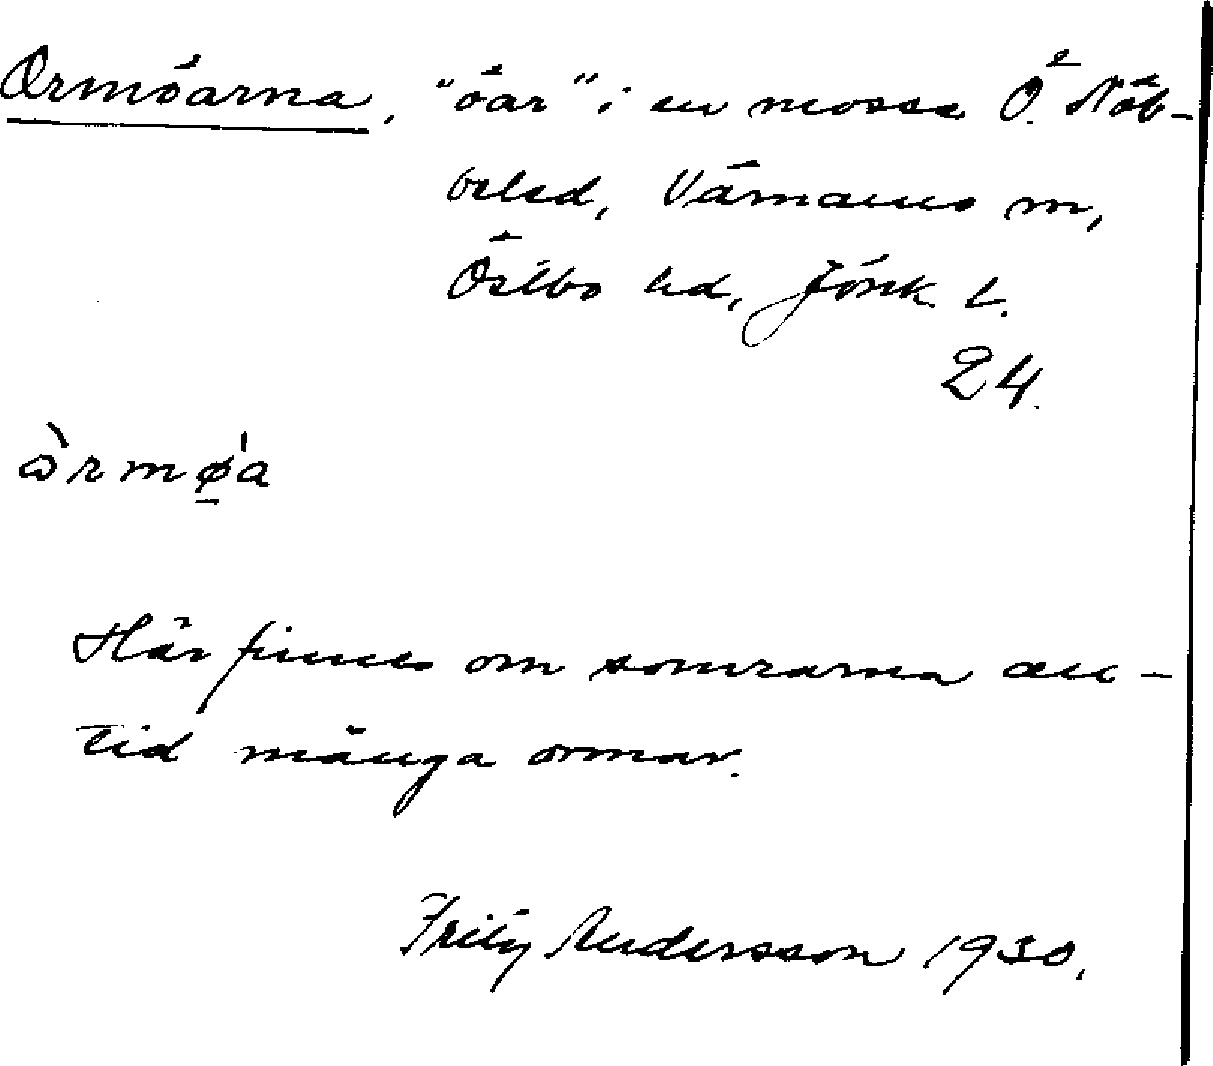 Ormöarna, "öar" i en mosse Ö. Näb-
beled, Värnamo sn,
Östbo hd, Jönk. l.
24.
òrmø̱'a
Här finnes om somrarna all-
tid många ormar.
Fritz Andersson 1930.